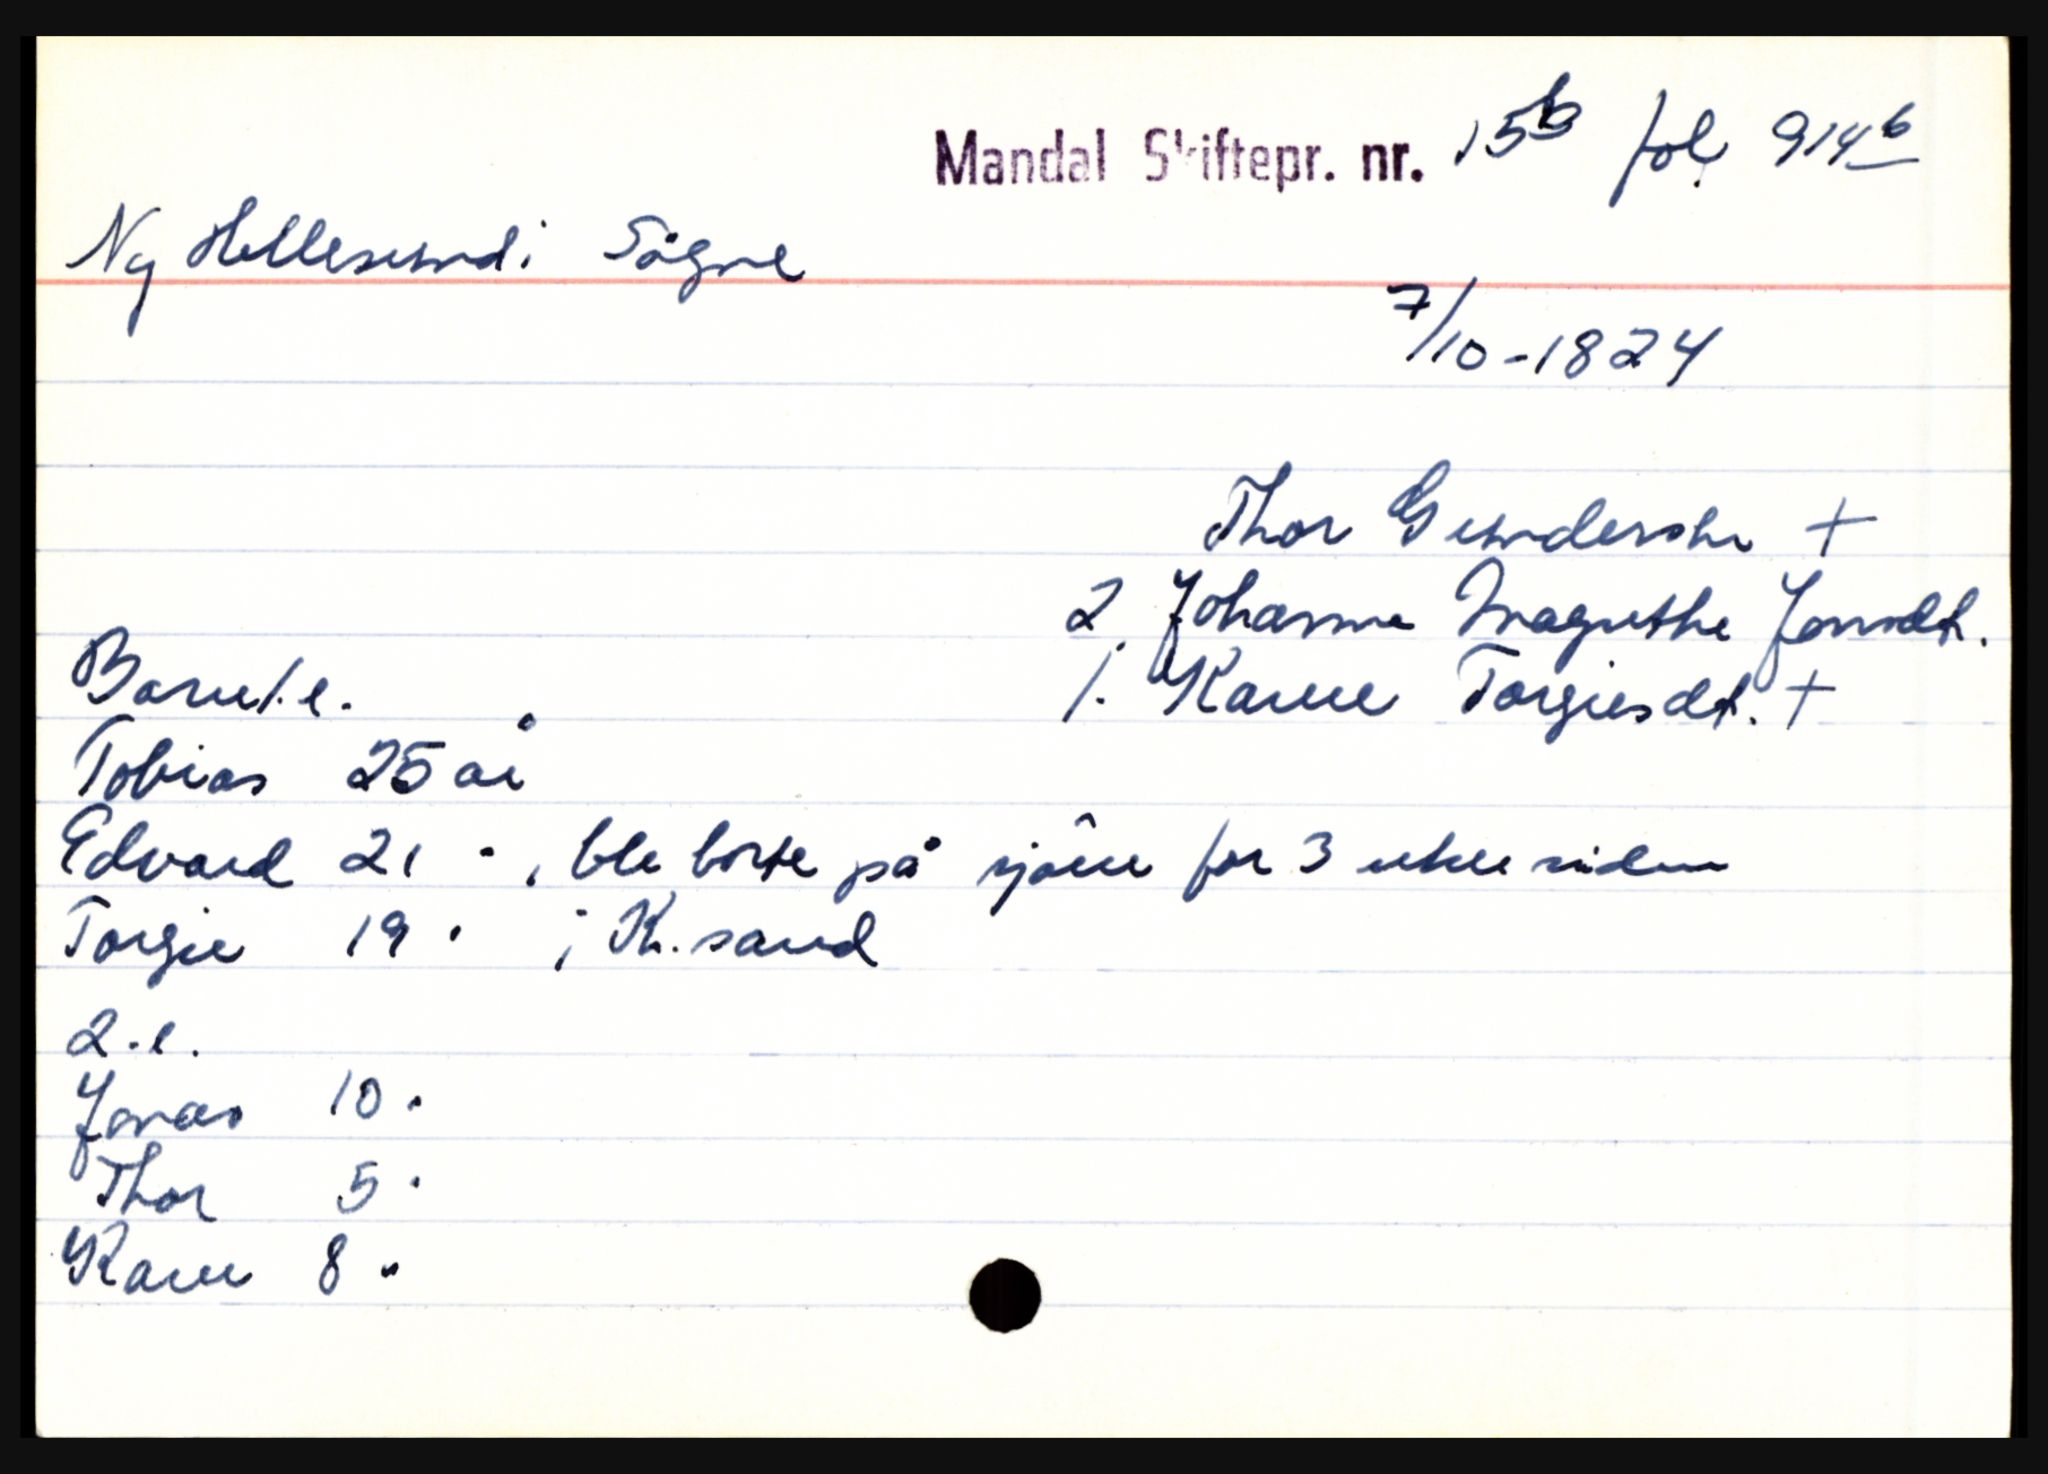 Mandal Skiftepr. nr. 15b fol. 914b
Ny Hellesund i Søgne
7/10-1824
Thor Gundersen +
2. Johanne Magrethe Jonsdt.
1. Karen Torgiesdt. +
Barn 1.e.
Tobias 25 år
Edvard 21 " , ble borte på sjøen for 3 uker siden
Torgie 19 " i K.sand
2.e.
Jonas 10 "
Thor 5 "
Karen 8 "